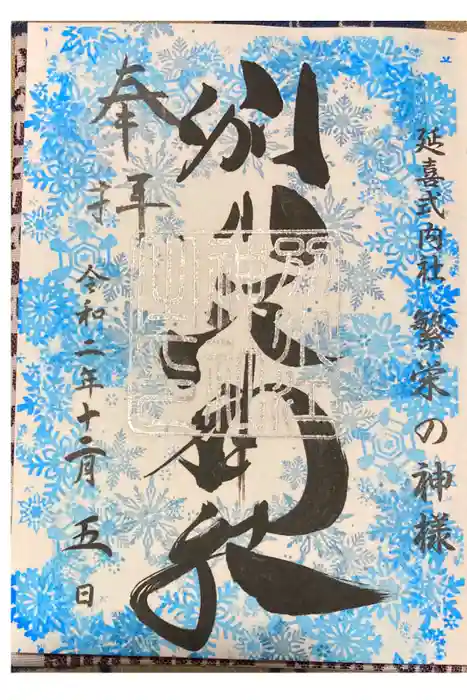 延喜式内社 繁栄の神様
別小江神社
奉拝
令和二年十二月五日